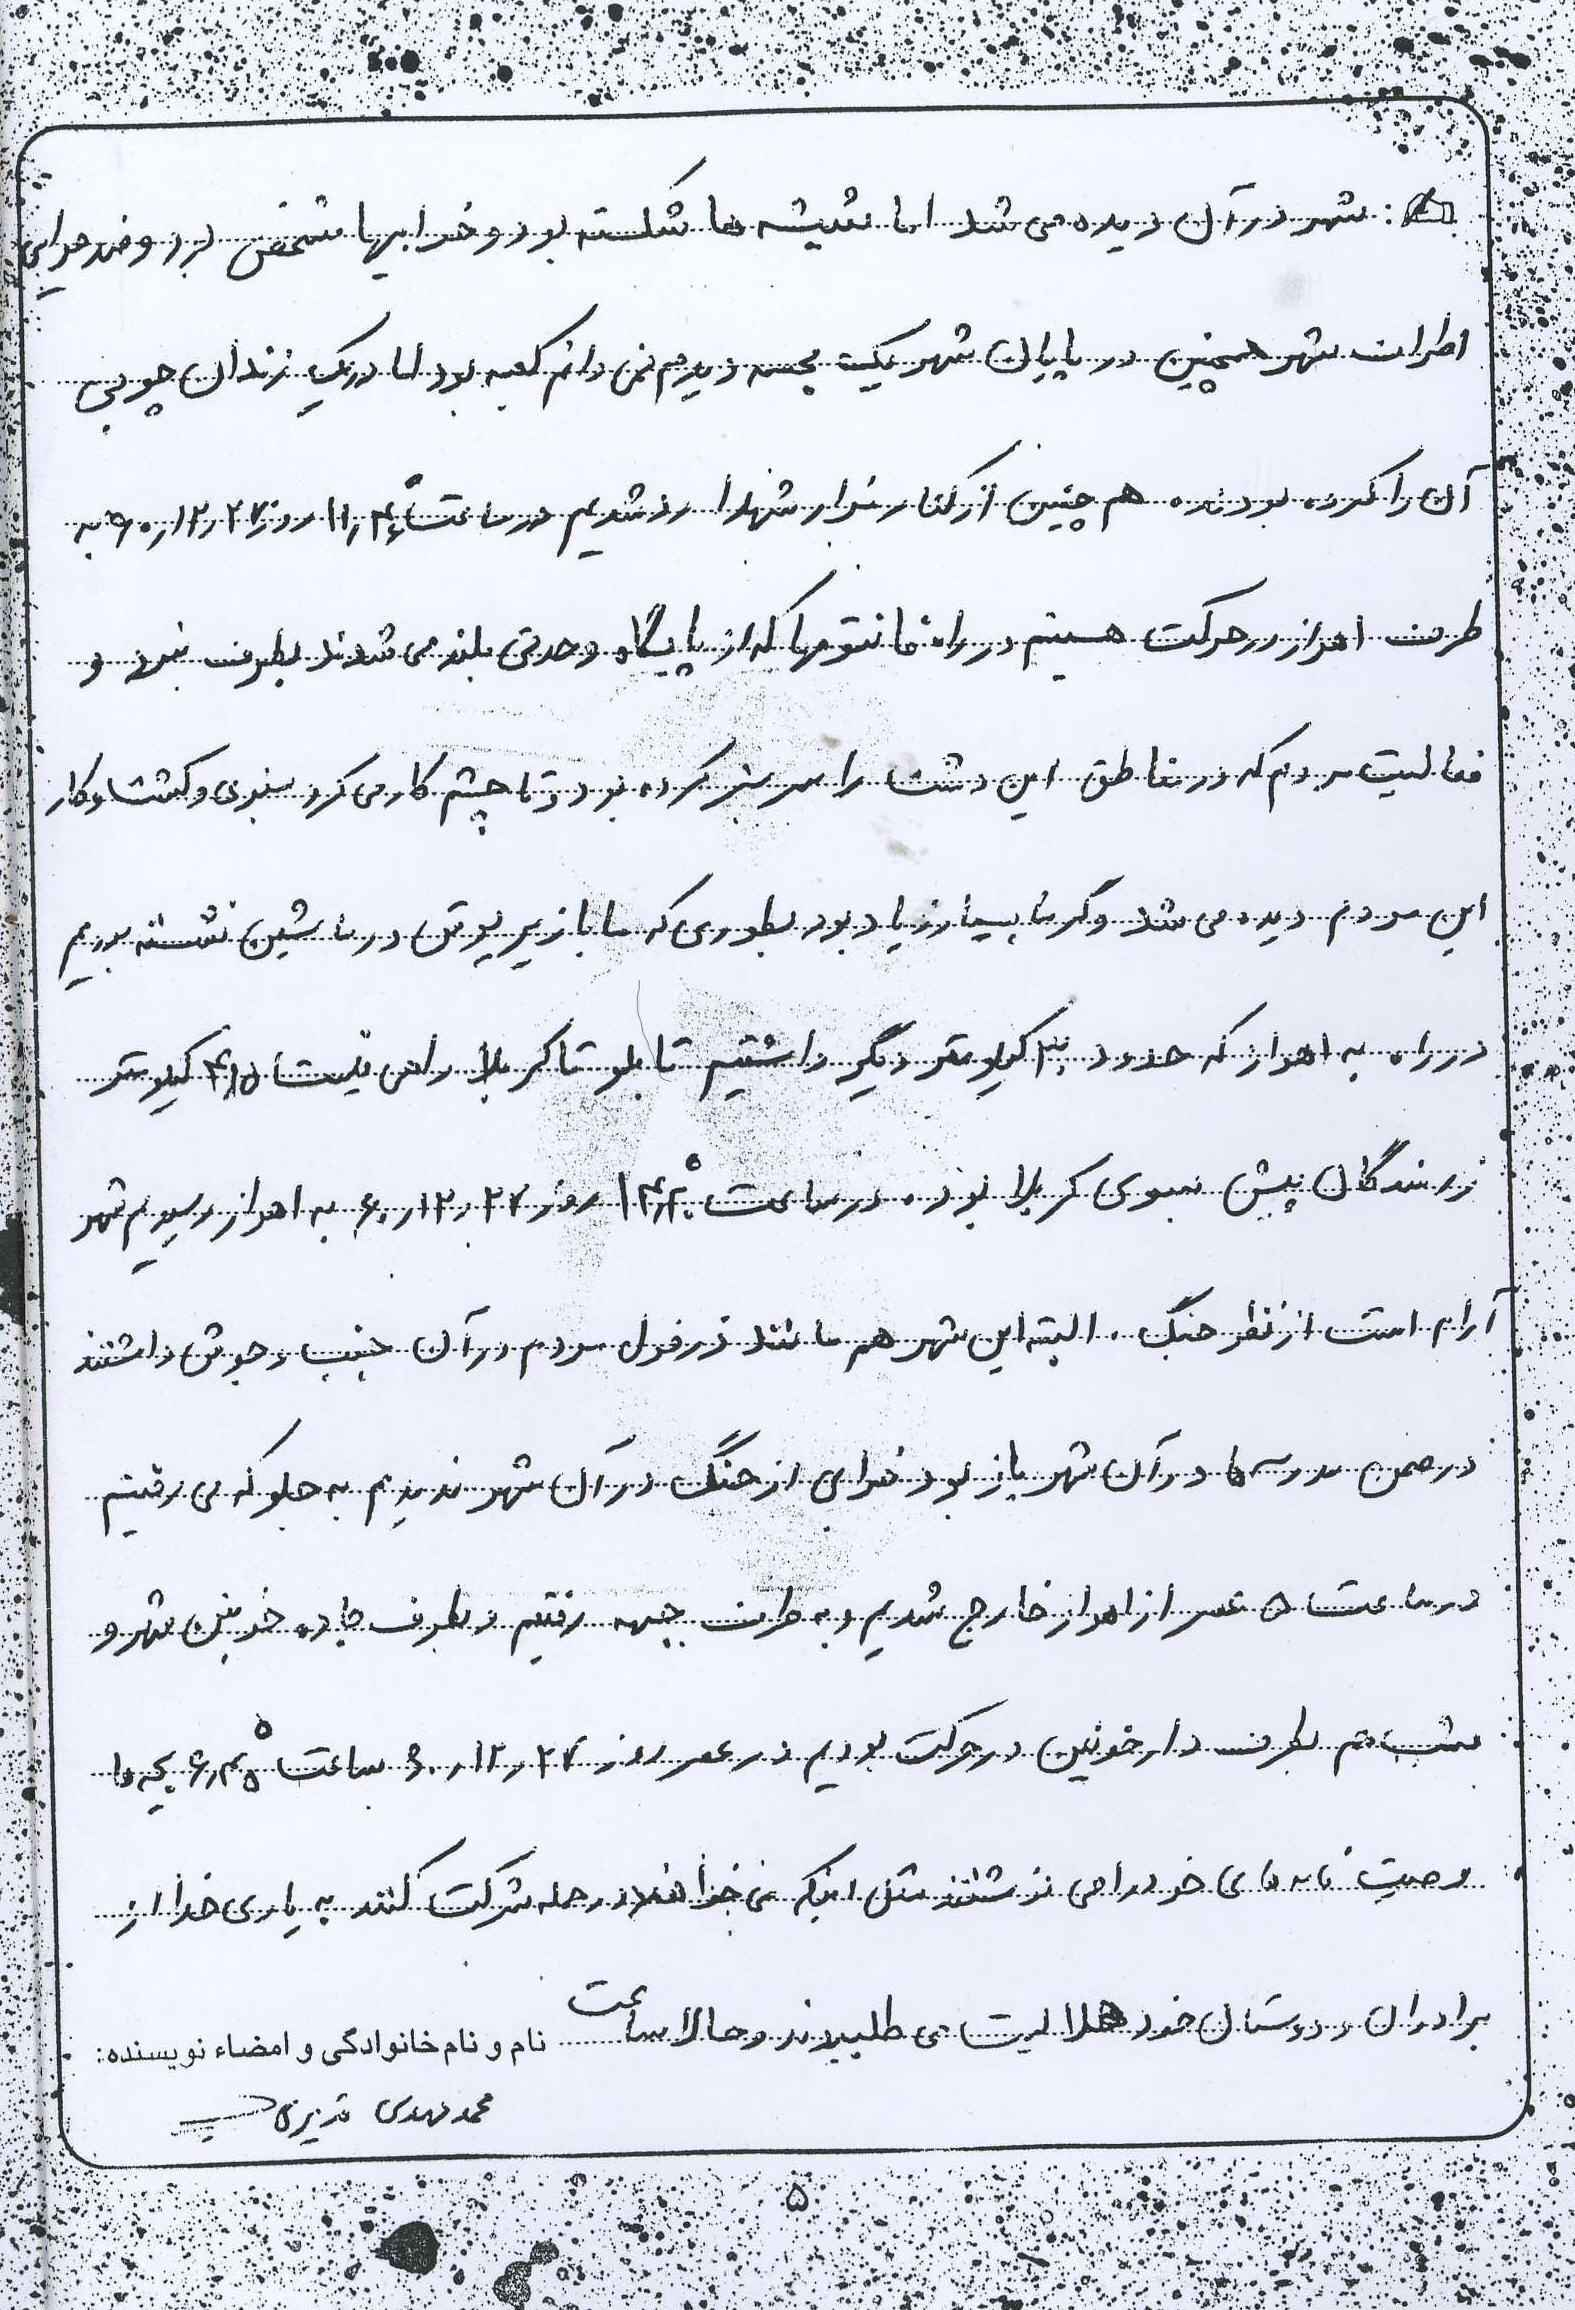 شهر در آن دیده می شد اما شیشه ها شکسته بود و خرابیها مشخص بود و ضد هوایی
اطراف شهر همچنین در پایان شهر یک مجسمه دیدم نمی دانم کعبه بود اما در یک زندان چوبی
آن را کرده بودند. هم چنین از کنار مزار شهدا رد شدیم در ساعت ۱۱٫۴۵ روز ۶۰٫۱۲٫۲۷ به
طرف اهواز در حرکت هستیم در راه فانتومها که از پایگاه وحدتی بلند می شدند بطرف نبرد و
فعالیت مردم که در مناطق این دشت را سرسبز کرده بود و تا چشم کار می کرد سبزی و کشت و کار
این مردم دیده می شد و گرما بسیار زیاد بود بطوری که ما با زیرپوش در ماشین نشسته بودیم
در راه به اهواز که حدود ۳۰ کیلومتر دیگر داشتیم تابلو تا کربلا راهی نیست ۴۸۵ کیلومتر
رزمندگان پیش بسوی کربلا بود. در ساعت روز ۶۰٫۱۲٫۲۷ به اهواز رسیدیم شهر
آرام است از نظر جنگ. البته این شهر هم مانند دزفول مردم در آن جنب و جوش داشتند
در ضمن مدرسه ها در آن شهر باز بود خرابی از جنگ در آن شهر ندیدیم به جلو که می رفتیم
در ساعت ۵ عصر از اهواز خارج شدیم و به طرف جبهه رفتیم و بطرف جاده خونین شهر و
بطرف دارخوئین در حرکت بودیم در عصر روز ۶۰٫۱۲٫۲۷ ساعت ۶٫۴۵ بچه ها
وصیت نامه های خود را می نوشتند مثل اینکه می خواهند در حمله شرکت کنند به یاری خدا از
برادران و دوستان خود حلالیت می طلبیدند و حالا ساعت
نام و نام خانوادگی و امضاء نویسنده:
محمد مهدی
۵